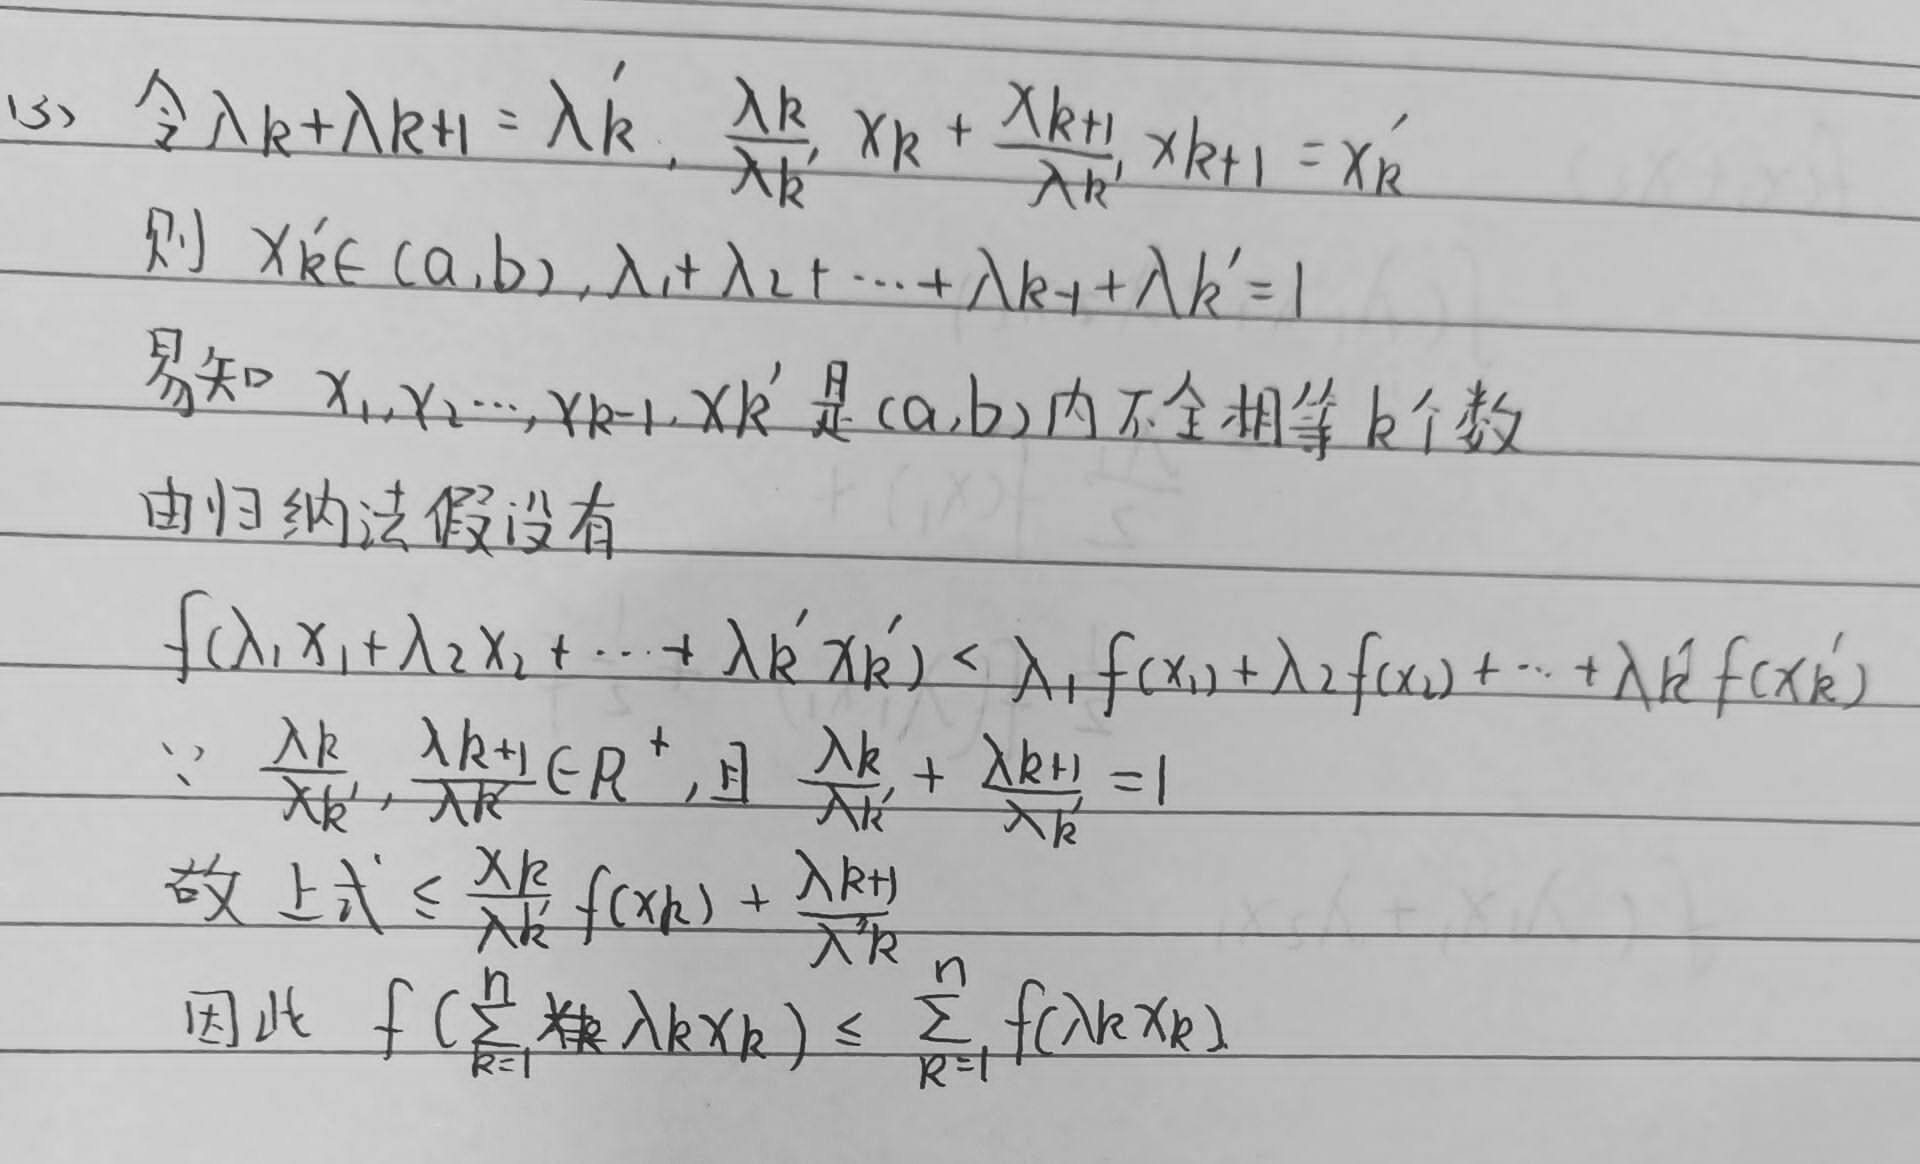 (3) 令λk+λk+1=λk′, λk/λk′ xk + λk+1/λk′ xk+1 = xk′
则 xk′∈(a,b), λ1+λ2+…+λk-1+λk′=1
易知 x1,x2…,xk-1,xk′是(a,b)内不全相等k个数
由归纳法假设有
f(λ1x1+λ2x2+…+λk′xk′)<λ1f(x1)+λ2f(x2)+…+λk′f(xk′)
∵ λk/λk′, λk+1/λk′∈R⁺,且 λk/λk′ + λk+1/λk′ =1
故上式≤ λk/λk′ f(xk) + λk+1/λ′k
因此 f(∑ⁿₖ₌₁ λkxk) ≤ ∑ⁿₖ₌₁ f(λkxk).